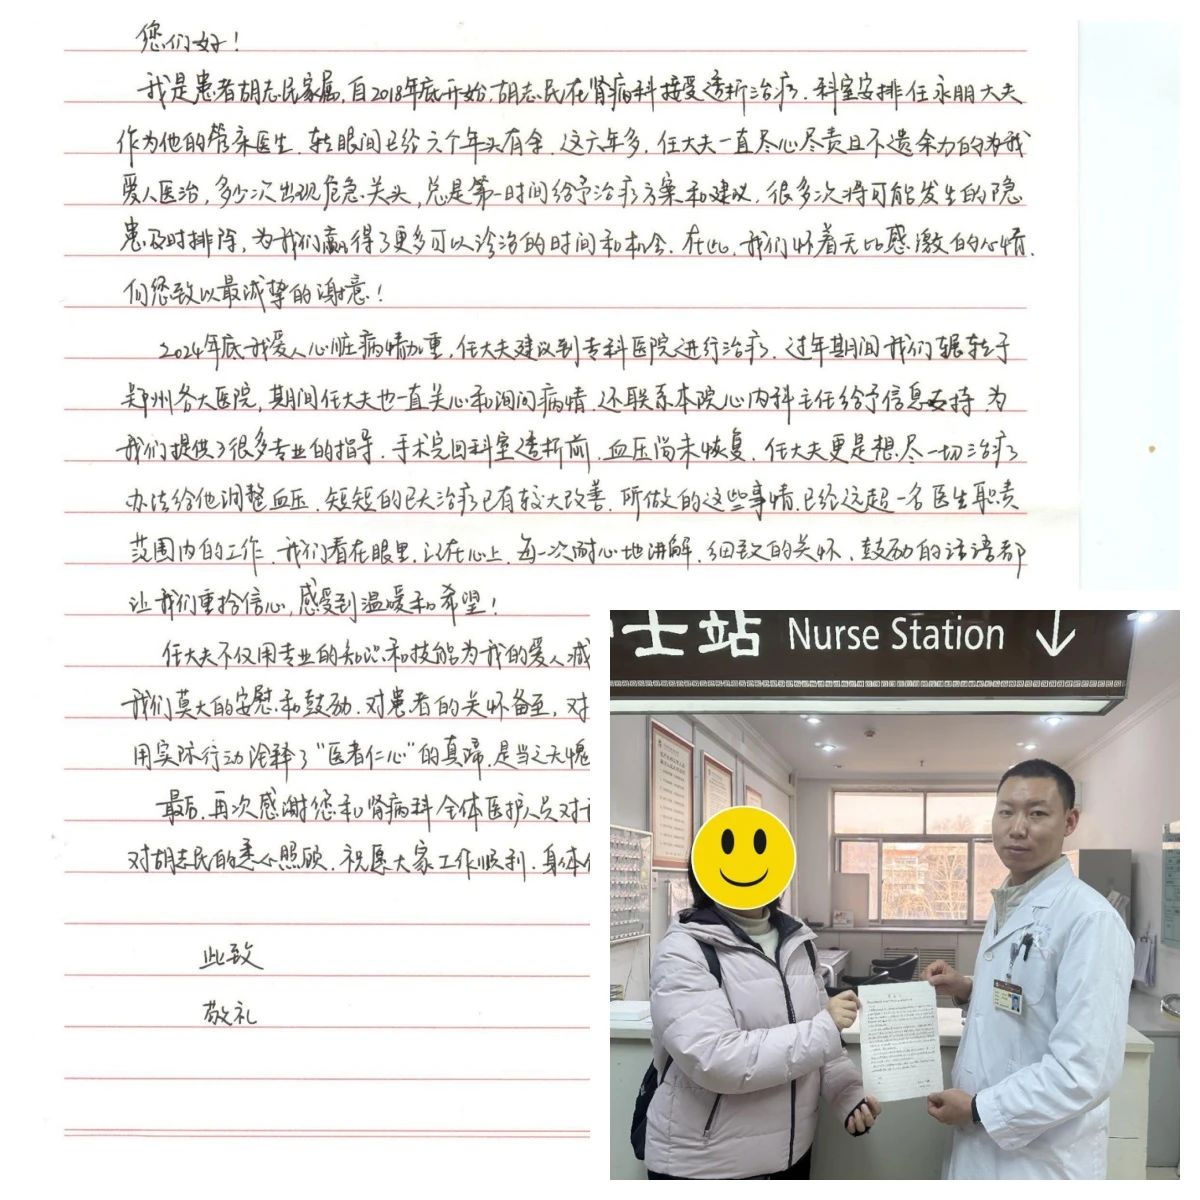 您们好！
我是患者胡志民家属，自2018年底开始，胡志民在肾病科接受透析治疗，科室安排任永朋大夫
作为他的管床医生，转眼间已经六个年头有余，这六年多，任大夫一直尽心尽责且不遗余力的为我
爱人医治，多少次出现危急关头，总是第一时间给予治疗方案和建议，很多次将可能发生的隐
患及时排除，为我们赢得了更多可以诊治的时间和机会，在此，我们怀着无比感激的心情，
向您致以最诚挚的谢意！
2024年底我爱人心脏病情加重，任大夫建议到专科医院进行治疗，过年期间我们辗转于
郑州各大医院，期间任大夫也一直关心和询问病情，还联系本院心内科主任给予信息支持，为
我们提供了很多专业的指导，手术完回科室透析前，血压尚未恢复，任大夫更是想尽一切治疗
办法给他调整血压，短短的已大治疗已有较大改善，所做的这些事情，已经远超一名医生职责
范围内的工作，我们看在眼里，记在心上，每一次耐心地讲解，细致的关怀，鼓励的话语都
让我们重拾信心，感受到温暖和希望！
任大夫不仅用专业的知识和技能为我的爱人减
我们莫大的安慰和鼓励，对患者的关怀备至，对
用实际行动诠释了“医者仁心”的真谛，是当之无愧
最后，再次感谢您和肾病科全体医护人员对
对胡志民的悉心照顾，祝愿大家工作顺利，身体
此致
敬礼
士站 Nurse Station ↓